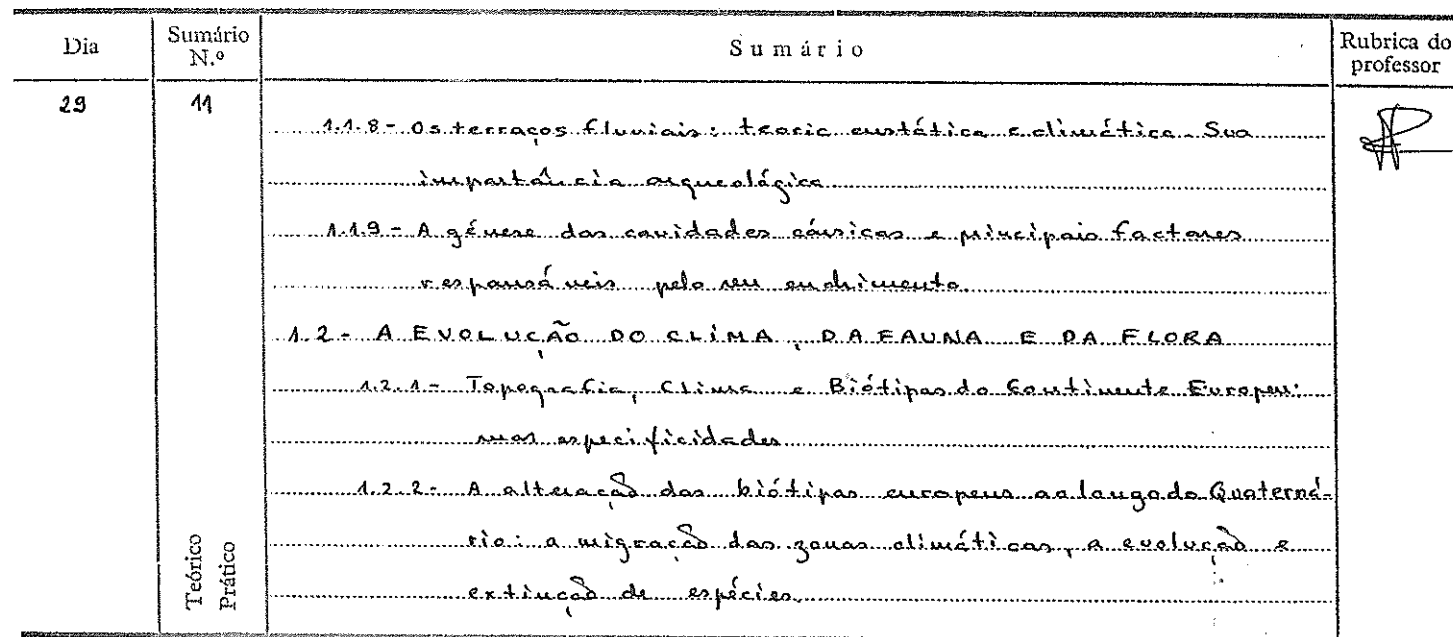 Dia
Sumário N.º
Sumário
Rubrica do professor
29
11
1.1.8- Os terraços fluviais: teoria eustática e climática. Sua
importância arqueológica
1.1.9 - A génese das cavidades cársicas e principais factores
responsáveis pelo seu enchimento.
1.2 - A EVOLUÇÃO DO CLIMA, DA FAUNA E DA FLORA
1.2.1- Topografia, Clima e Biótipos do Continente Europeu:
suas especificidades
1.2.2- A alteração dos biótipos europeus ao longo do Quaterná-
rio: a migração das zonas climáticas, a evolução e
extinção de espécies.
Teórico
Prático